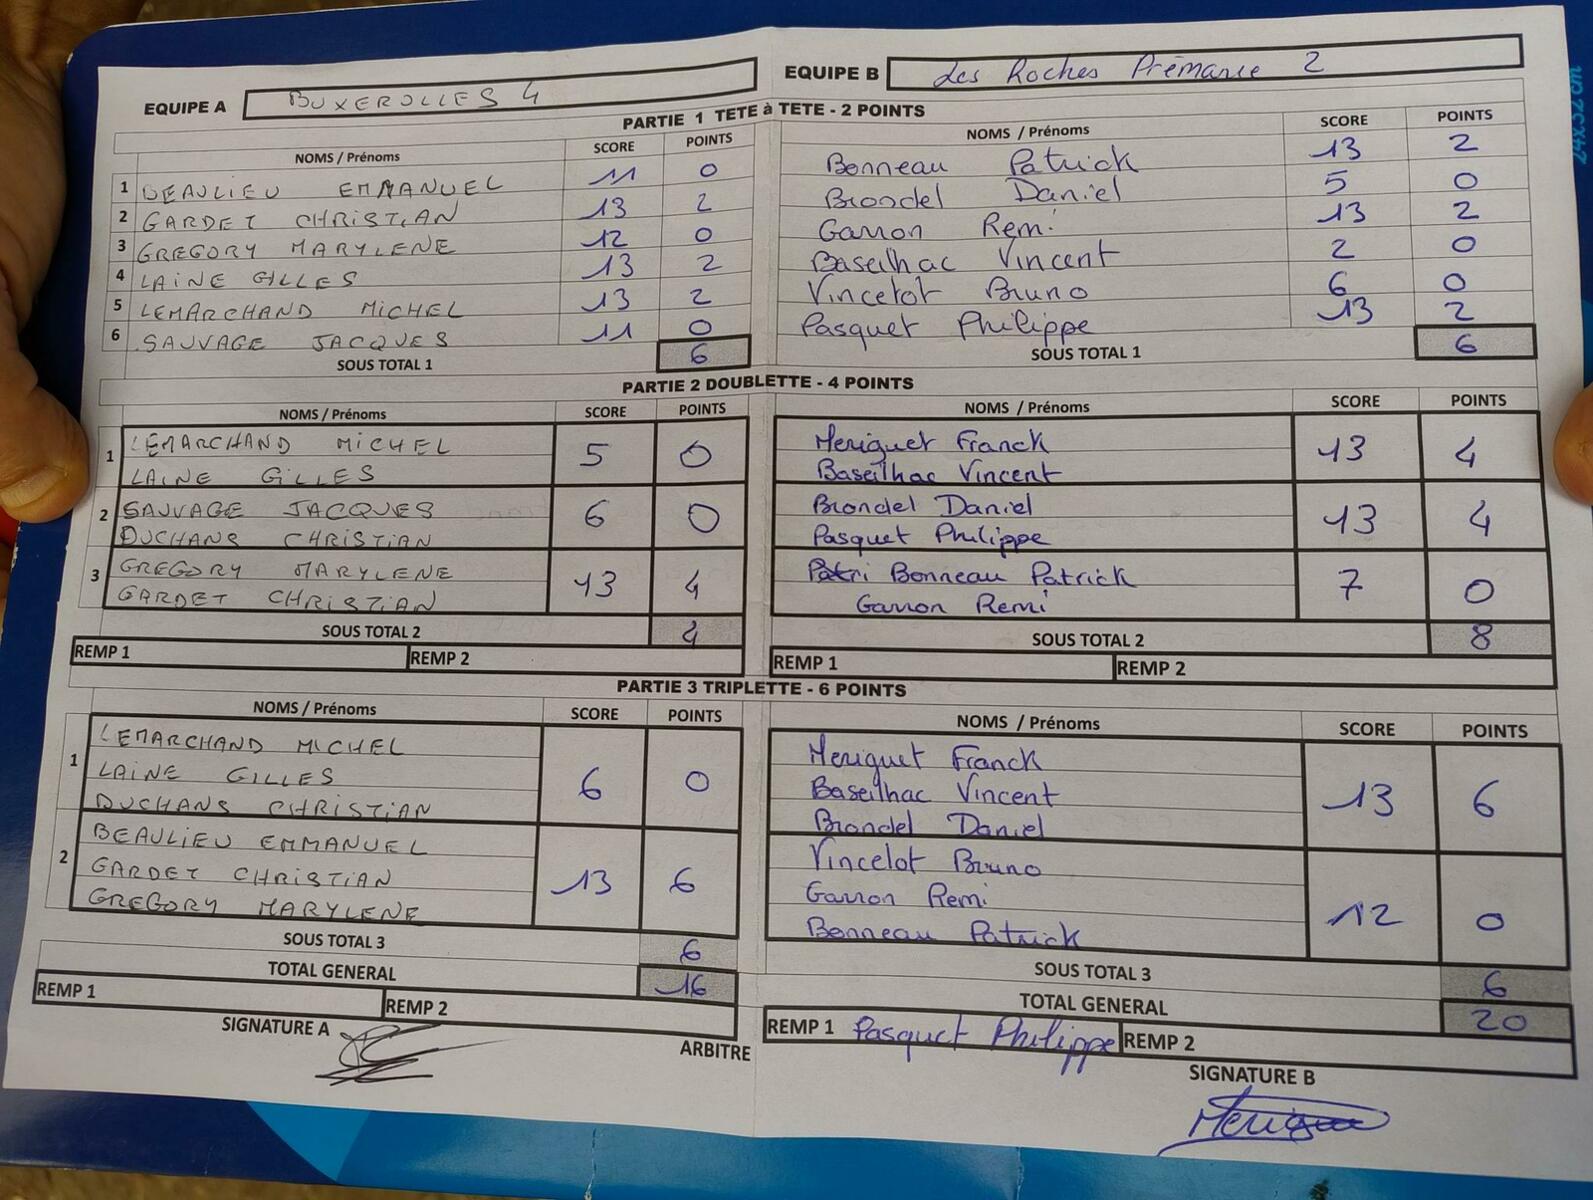 EQUIPE A BUXEROLLES 4 EQUIPE B Les Roches Prémarie 2
PARTIE 1 TETE à TETE - 2 POINTS
NOMS / Prénoms SCORE POINTS NOMS / Prénoms SCORE POINTS
1 BEAULIEU EMMANUEL 11 0 Bonneau Patrick 13 2
2 GARDET CHRISTIAN 13 2 Brondel Daniel 5 0
3 GREGORY MARYLENE 12 0 Garron Remi 13 2
4 LAINE GILLES 13 2 Baseilhac Vincent 2 0
5 LEMARCHAND MICHEL 13 2 Vincelot Bruno 6 0
6 SAUVAGE JACQUES 11 0 Pasquet Philippe 13 2
SOUS TOTAL 1 6 SOUS TOTAL 1 6
PARTIE 2 DOUBLETTE - 4 POINTS
NOMS / Prénoms SCORE POINTS NOMS / Prénoms SCORE POINTS
1 LEMARCHAND MICHEL 5 0 Meriguet Franck 13 4
LAINE GILLES Baseilhac Vincent
2 SAUVAGE JACQUES 6 0 Brondel Daniel 13 4
DUCHANS CHRISTIAN Pasquet Philippe
3 GREGORY MARYLENE 13 4 Patri Bonneau Patrick 7 0
GARDET CHRISTIAN Garron Remi
SOUS TOTAL 2 4 SOUS TOTAL 2 8
REMP 1 REMP 2 REMP 1 REMP 2
PARTIE 3 TRIPLETTE - 6 POINTS
NOMS / Prénoms SCORE POINTS NOMS / Prénoms SCORE POINTS
1 LEMARCHAND MICHEL Meriguet Franck
LAINE GILLES 6 0 Baseilhac Vincent 13 6
DUCHANS CHRISTIAN Brondel Daniel
2 BEAULIEU EMMANUEL Vincelot Bruno
GARDET CHRISTIAN 13 6 Garron Remi 12 0
GREGORY MARYLENE Bonneau Patrick
SOUS TOTAL 3 6 SOUS TOTAL 3 6
TOTAL GENERAL 16 TOTAL GENERAL 20
REMP 1 REMP 2 REMP 1 Pasquet Philippe REMP 2
SIGNATURE A ARBITRE SIGNATURE B
24x32 cm